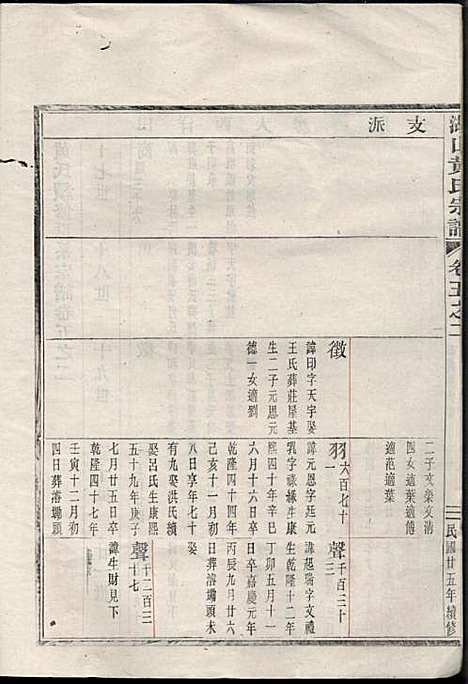 湖山黃氏宗譜
卷五之二
一
民國廿五年續修
支派
二子文榮文清
四女適葉適傅
適范適葉
徵
諱印字天字娶
王氏葬莊屋基
生二子元恩元
德一女適劉
羽一
大百七十
諱元恩字廷元
乳字祿緣生康
熙四十年辛巳
六月十六日卒
乾隆四十四年
己亥十一月初
八日享年七十
有九娶洪氏續
娶呂氏生康熙
五十九年庚子
七月廿五日卒
乾隆四十七年
壬寅十二月初
四日葬濬㘭頭
聲三
千百三十
諱起瑞字文禮
生乾隆十二年
丁卯五月十一
日卒嘉慶元年
丙辰九月廿六
日葬濬㘭頭未
娶
聲十七
十二百三
諱生財見下